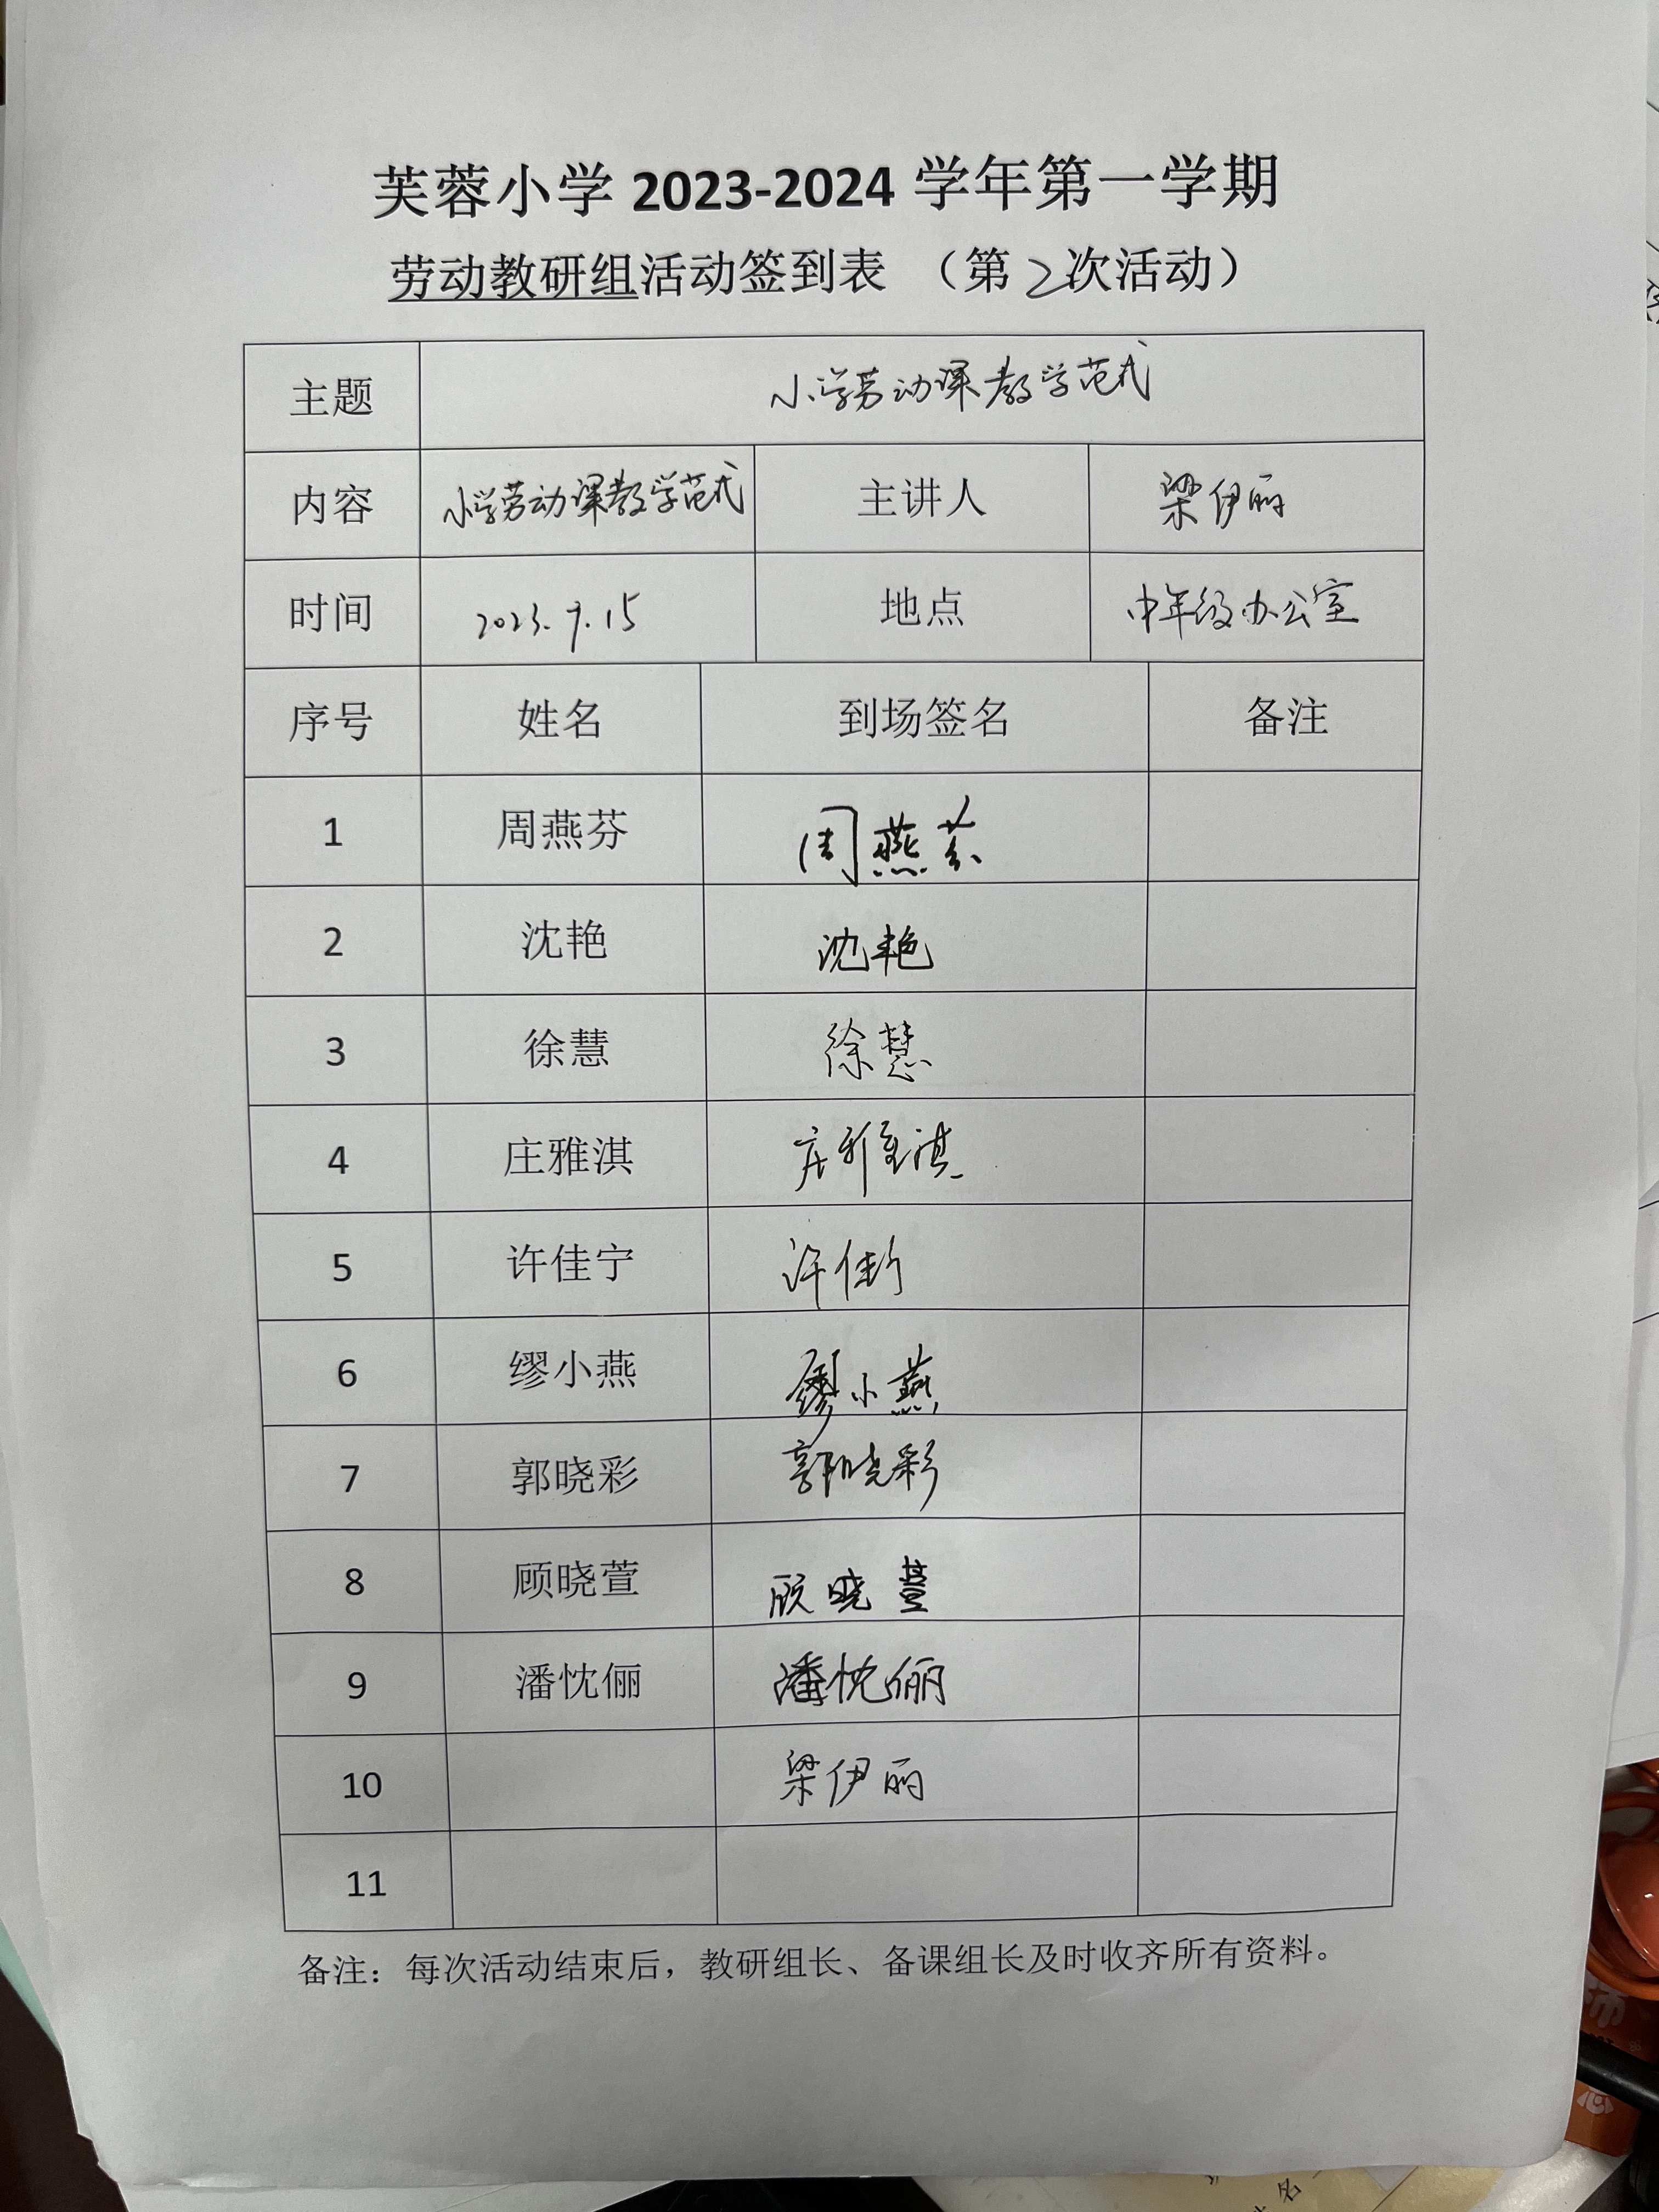 芙蓉小学 2023-2024 学年第一学期
劳动教研组活动签到表 （第2次活动）
主题 小学劳动课教学范式
内容 小学劳动课教学范式 主讲人 梁伊丽
时间 2023.9.15 地点 中年级办公室
序号 姓名 到场签名 备注
1 周燕芬 周燕芬
2 沈艳 沈艳
3 徐慧 徐慧
4 庄雅淇 庄雅淇
5 许佳宁 许佳宁
6 缪小燕 缪小燕
7 郭晓彩 郭晓彩
8 顾晓萱 顾晓萱
9 潘忱俪 潘忱俪
10 梁伊丽
11
备注：每次活动结束后，教研组长、备课组长及时收齐所有资料。